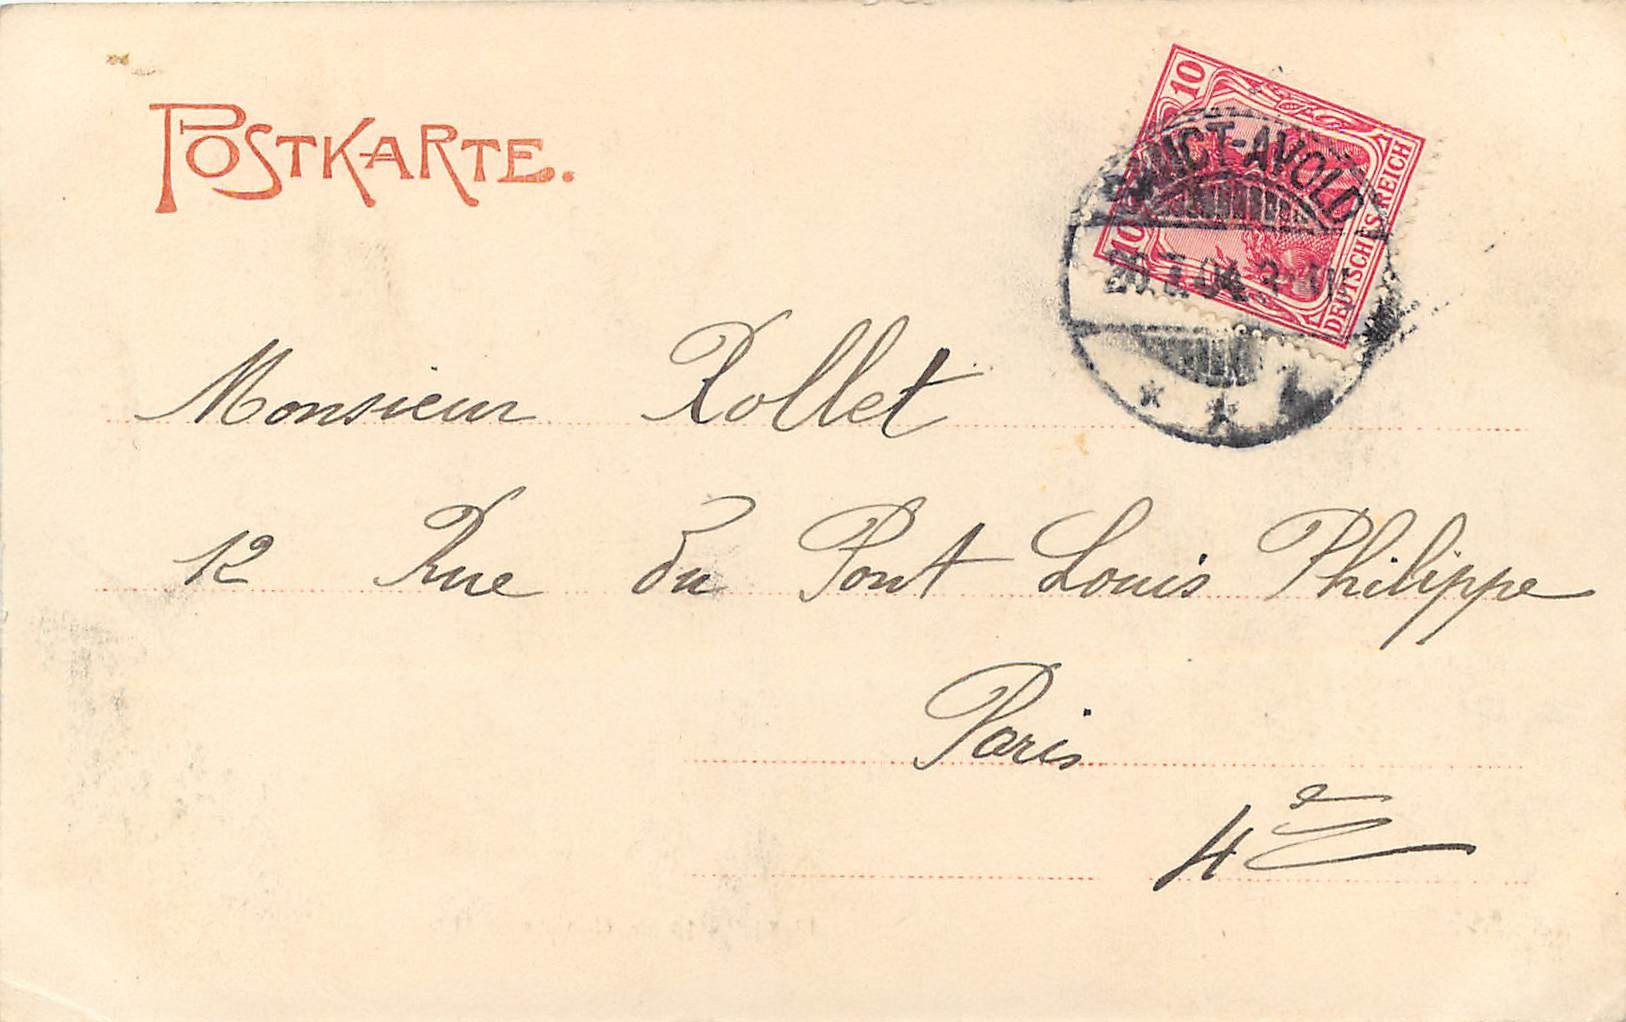 POSTKARTE.
10
10
DEUTSCHES REICH
SANCT-AVOLD
Monsieur Rollet
12 Rue du Pont Louis Philippe
Paris
4e